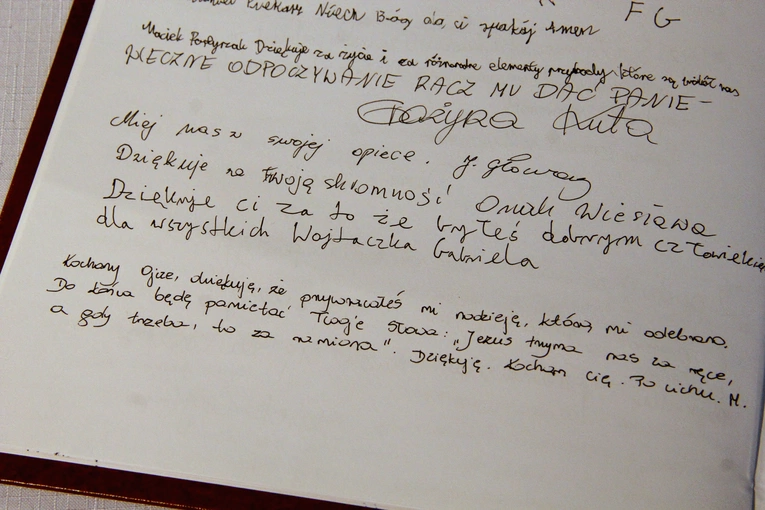 Niech Bóg da ci spokój Amen
F G
Maciek Dziękuje za życie i za różnorodne elementy przyrody, które są wśród nas
WIECZNE ODPOCZYWANIE RACZ MU DAĆ PANIE -
Grażyna Kuta
Miej nas w swojej opiece. J. Głowacz
Dziękuje za Twoją skromność Onuk Wiesława
Dziękuje ci za to że byłeś dobrym człowiekiem
dla wszystkich Wojtaczka Gabriela
Kochany Ojcze, dziękuję, że przywracałeś mi nadzieję, którą mi odebrano.
Do końca będę pamiętać Twoje słowa: „Jezus trzyma nas za ręce,
a gdy trzeba, to za ramiona". Dziękuję. Kocham Cię. Po cichu. M.